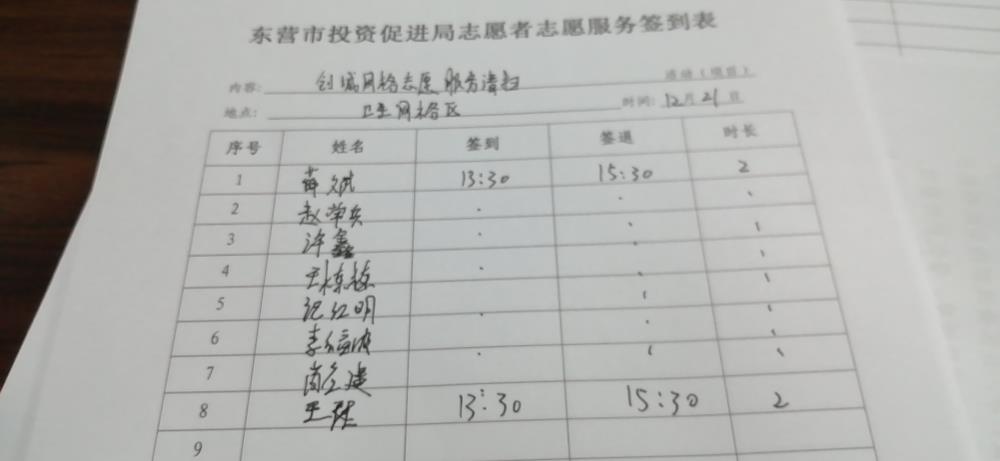 东营市投资促进局志愿者志愿服务签到表
内容: 创城网格志愿服务清扫 活动（项目）
地点: 卫生网格区 时间: 12月21日
序号 姓名 签到 签退 时长
1 薛斌 13:30 15:30 2
2 赵荣兵 · · ·
3 许鑫 · · ·
4 王栋 · · ·
5 纪红明 · · ·
6 李 · · ·
7 尚 建 · · ·
8 王 13:30 15:30 2
9